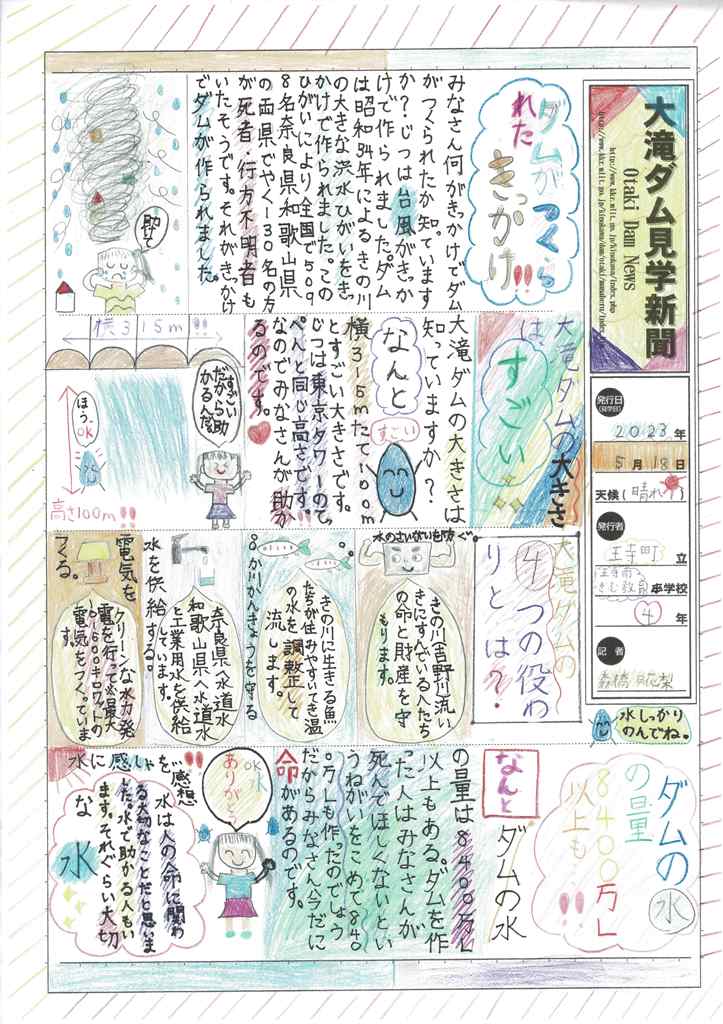 大滝ダム見学新聞
Otaki Dam News
発行日
(見学日)
2023年
5月18日
天候(晴れ)
発行者
王寺町立
学校
4年
記者
水しっかり
のんでね。
ダムがつくら
れた
きっかけ!!
みなさん何がきっかけでダム
がつくられたか知っています
か？じつは台風がきっか
けで作られました。ダム
は昭和34年によるきの川
の大きな洪水ひがいをきっ
かけで作られました。この
ひがいにより全国で509
8名奈良県和歌山県
の両県でやく130名の方
が死者・行方不明者も
いたそうです。それがきっかけ
でダムが作られました。
助けて
大滝ダムの大きさ
は、
すごい
大滝ダムの大きさは
知っていますか？
なんと
すごい
横315mたて100m
とすごい大きさです。
じつは東京タワーのて
ぺんと同じ高さです。
なのでみなさんが助か
るのです。
横315m!!
すごい
だから助
かるんだ。
ほう、OK
高さ100m!!
大滝ダムの
4つの役わ
りとは？
水のさいがいを防ぐ
きの川(吉野川)流い
きにすんでいる人たち
の命と財産を守
もります。
きの川に生きる魚
たちが住みやすいてき温
の水を調整して
流します。
川かんきょうを守る
奈良県へ水道水
和歌山県へ水道水
と工業用水を供給
しています。
水を供給する。
クリーンな水力発
電を行って最大
10.600キロワットの
電気をつくっていま
す。
電気を
つくる。
ダムの水
の量
8400万t
以上も!!
なんとダムの水
の量は8400万t
以上もある。ダムを作
った人はみなさんが
死んでほしくないとい
うねがいをこめて840
0万tも作ったのでしょう
だからみなさん今だに
命があるのです。
OK
水
ありがとう
水に感しゃを!!
感想
水は人の命に関わ
る大切なことだと思いま
した。水で助かる人もい
ます。それぐらい大切
な水